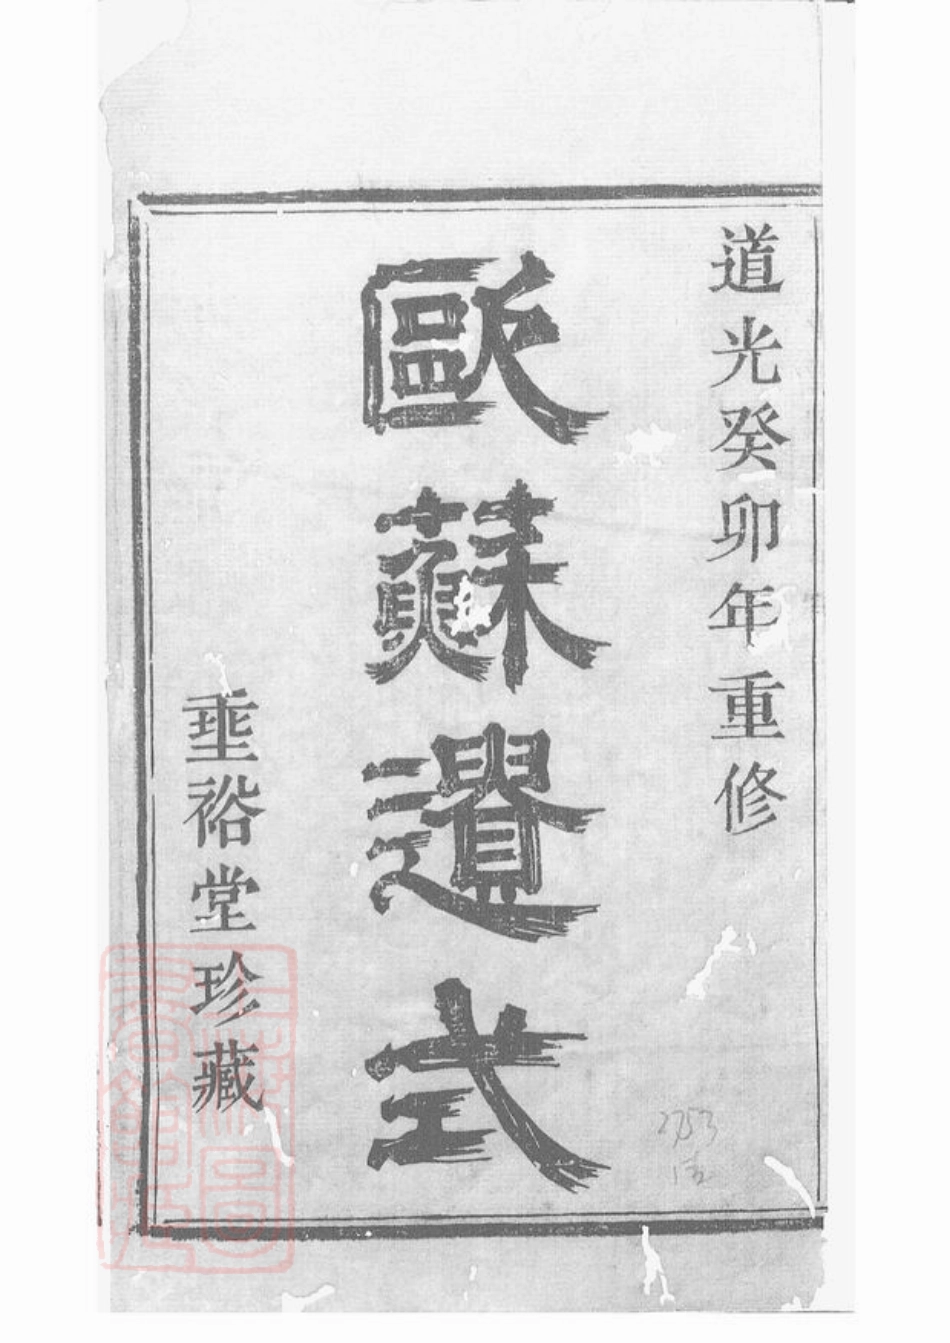 道光癸卯年重修
歐蘇遺式
埀裕堂珍藏
2753